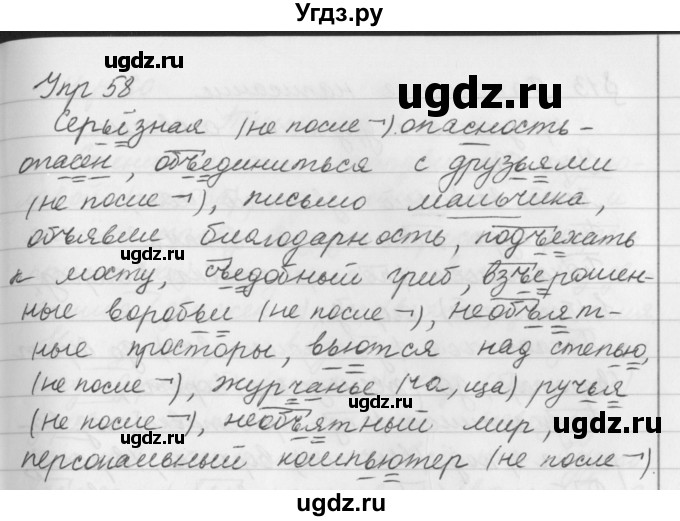 Угдз.ру
Упр 58
Серьёзная (не после ¬). опасность -
опасен, объединиться с друзьями
(не после ¬), письмо мальчика,
объявил благодарность, подъехать
к мосту, съедобный гриб, взъерошен-
ные воробьи (не после ¬), необъят-
ные просторы, вьются над степью,
(не после ¬), журчанье (ча, ща) ручья
(не после ¬), необъятный мир,
персональный компьютер (не после ¬).
ugdz.ru
ugdz.ru
ugdz.ru
ugdz.ru
ugdz.ru
ugdz.ru
ugdz.ru